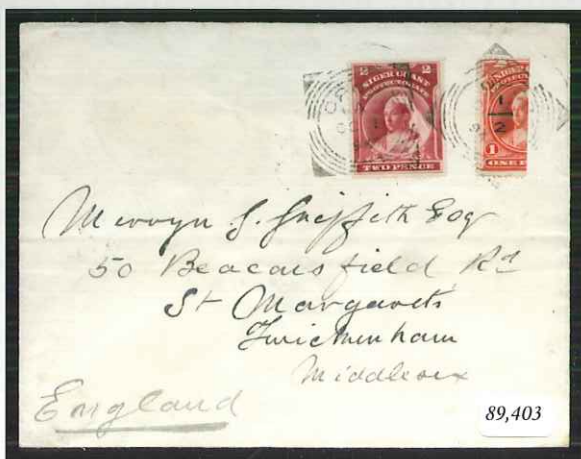 2 2
NIGER COAST
PROTECTORATE
TWO PENCE
NIGER
1
2
1
ONE P
Mervyn G. Griffith Esq
50 Beaconsfield Rd
St Margarets
Twickenham
Middlesex
England
89,403